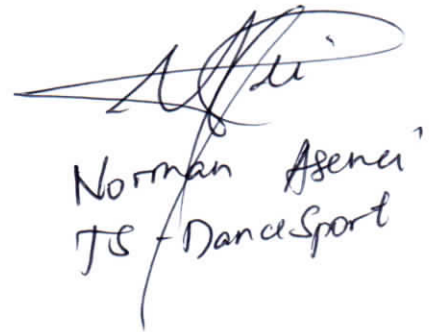 Norman Asenci
TS - DanceSport